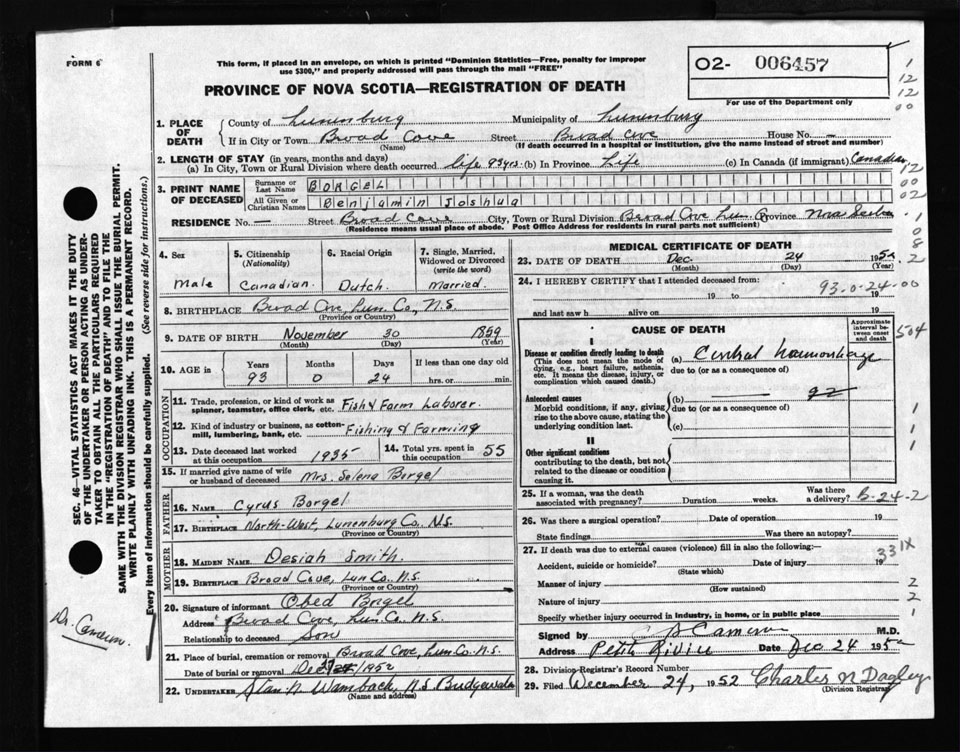 FORM 6
This form, if placed in an envelope, on which is printed "Dominion Statistics—Free, penalty for improper
use $300," and properly addressed will pass through the mail "FREE"
O2- 006457
For use of the Department only
PROVINCE OF NOVA SCOTIA—REGISTRATION OF DEATH
1. PLACE OF DEATH
County of Lunenburg Municipality of Lunenburg
If in City or Town Broad Cove Street Broad Cove House No. —
(Name) (If death occurred in a hospital or institution, give the name instead of street and number)
2. LENGTH OF STAY (in years, months and days)
(a) In City, Town or Rural Division where death occurred life 93yrs. (b) In Province Life (c) In Canada (if immigrant) Canadian
3. PRINT NAME OF DECEASED
Surname or Last Name BORGEL
All Given or Christian Names Benjamin Joshua
RESIDENCE No. — Street Broad Cove City, Town or Rural Division Broad Cove Lun. Co Province Nova Scotia
(Residence means usual place of abode. Post Office Address for residents in rural parts not sufficient)
4. Sex
Male
5. Citizenship
(Nationality)
Canadian.
6. Racial Origin
Dutch.
7. Single, Married, Widowed or Divorced
(write the word)
Married.
8. BIRTHPLACE Broad Cove, Lun. Co., N.S.
(Province or Country)
9. DATE OF BIRTH November 30 1859
(Month) (Day) (Year)
10. AGE in
Years Months Days If less than one day old
93 0 24 hrs. or min.
OCCUPATION
11. Trade, profession, or kind of work as
spinner, teamster, office clerk, etc. Fish & Farm Laborer.
12. Kind of industry or business, as cotton-
mill, lumbering, bank, etc. Fishing & Farming
13. Date deceased last worked
at this occupation 1935
14. Total yrs. spent in
this occupation 55
15. If married give name of wife
or husband of deceased Mrs. Selena Borgel
FATHER
16. NAME Cyrus Borgel
17. BIRTHPLACE North-West, Lunenburg Co., N.S.
(Province or Country)
MOTHER
18. MAIDEN NAME Desiah Smith.
19. BIRTHPLACE Broad Cove, Lun Co. N.S.
(Province or Country)
20. Signature of informant Obed Borgel
Address Broad Cove, Lun. Co. N.S.
Relationship to deceased Son
21. Place of burial, cremation or removal Broad Cove, Lun Co. N.S.
Date of burial or removal Dec 1952
22. UNDERTAKER Stan N. Wamback, N.S. Bridgewater
(Name and address)
MEDICAL CERTIFICATE OF DEATH
23. DATE OF DEATH Dec. 24 1952
(Month) (Day) (Year)
24. I HEREBY CERTIFY that I attended deceased from:
19 to 19
and last saw h alive on 19
93-0-24-00
CAUSE OF DEATH
Approximate interval between onset and death
I
Disease or condition directly leading to death (a) Cerebral haemorrhage
(This does not mean the mode of dying, e.g., heart failure, asthenia, etc. It means the disease, injury, or complication which caused death.)
due to (or as a consequence of)
Antecedent causes (b) —
Morbid conditions, if any, giving rise to the above cause, stating the underlying condition last.
due to (or as a consequence of)
(c)
II
Other significant conditions
contributing to the death, but not related to the disease or condition causing it.
25. If a woman, was the death
associated with pregnancy? Duration weeks. Was there a delivery?
B-24-2
26. Was there a surgical operation? Date of operation 19
State findings Was there an autopsy?
27. If death was due to external causes (violence) fill in also the following:—
Accident, suicide or homicide? Date of injury 19
(State which)
331X
Manner of injury
(How sustained)
Nature of injury
Specify whether injury occurred in industry, in home, or in public place
Signed by Cameron M.D.
Address Petite Riviere Date Dec 24 1952
28. Division-Registrar's Record Number
29. Filed December 24, 1952 Charles N Dagley
(Division Registrar)
SEC. 46—VITAL STATISTICS ACT MAKES IT THE DUTY
OF THE UNDERTAKER OR PERSON ACTING AS UNDER-
TAKER TO OBTAIN ALL THE PARTICULARS REQUIRED
IN THE "REGISTRATION OF DEATH" AND TO FILE THE
SAME WITH THE DIVISION REGISTRAR WHO SHALL ISSUE THE BURIAL PERMIT.
WRITE PLAINLY WITH UNFADING INK. THIS IS A PERMANENT RECORD.
Every item of information should be carefully supplied. (See reverse side for instructions.)
Dr. Cameron.
1
12
12
00
12
00
02
1
0
8
2
504
1
1
1
2
2
1